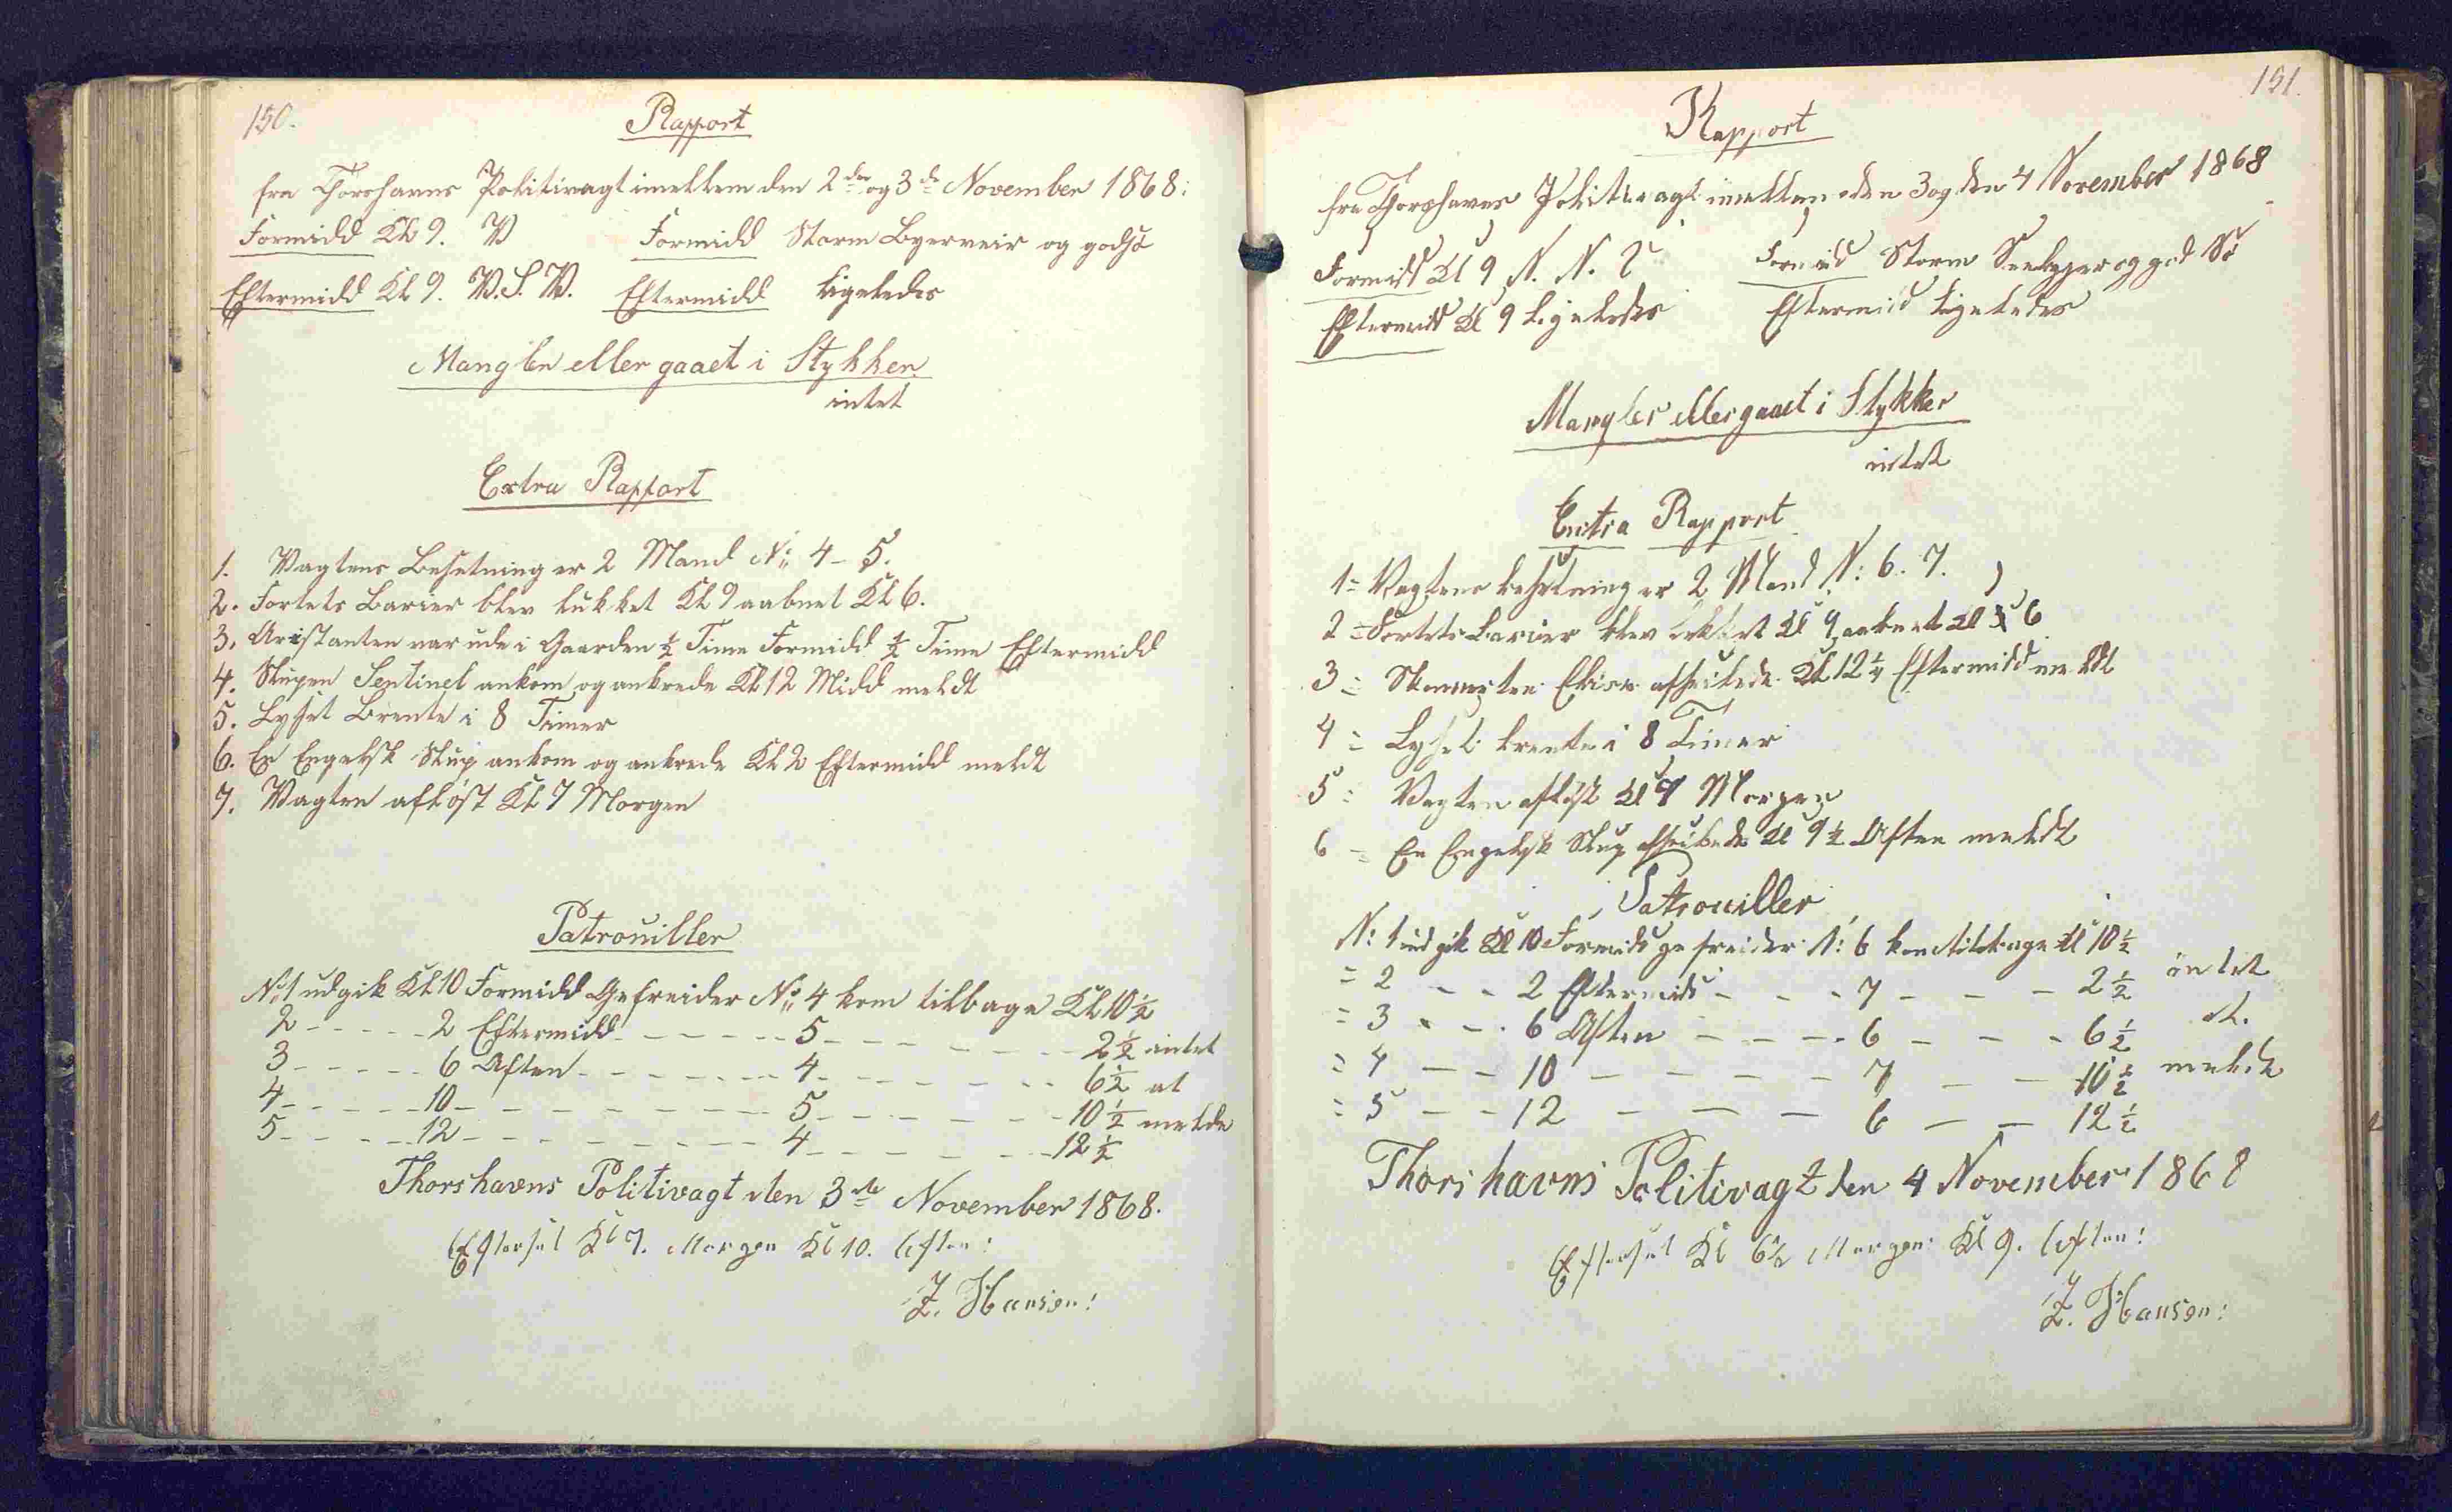 150.
Rapport
fra Thorshavns Politivagt imellem den 2den og 3de November 1868:
Formidd Kl 9. V Formidd Storm Byerveir og god Sö
Eftermidd Kl 9. V.S.V. Eftermidd ligeledes
Mangler eller gaaet i Stykker
intet
Extra Rapport
1. Vagtens Besetning er 2 Mand No 4-5.
2. Fortets Barier blev lukket Kl 9 aabnet Kl 6.
3. Aristanten var ude i Gaarden ½ Time Formidd ½ Time Eftermidd
4. Slupen Sentinel ankom og ankrede Kl 12 Midd meldt
5. Lyset Brente i 8 Timer
6. En Engelsk Slup ankom og ankrede Kl 2 Eftermidd meldt
7. Vagten aflöst Kl 7 Morgen
Patrouiller
No 1 udgik Kl 10 Formidd Gefreider No 4 kom tilbage Kl 10½
2 - - - - - 2 Eftermidd - - - - - 5 - - - - - 2½ intet
3 - - - - - 6 Aften - - - - - 4 - - - - - 6½ at
4 - - - - - 10 - - - - - 5 - - - - - 10½ melde
5 - - - - - 12 - - - - - 4 - - - - - 12½
Thorshavns Politivagt den 3de November 1868.
Efterset Kl 7. Morgen Kl 10. Aften:
Z. Hansen:
151.
Rapport
fra Thorshavns Politivagt imellem den 3 og den 4 November 1868
Formidd Kl 9 N. N. V Formid Storm og god Sö
Eftermidd Kl 9 ligeledes Eftermid ligeledes
Mangler eller gaaet i Stykker
intet
Extra Rapport
1 = Vagtens besetning er 2 Mand N: 6. 7.
2 = Fortets Barier blev lukket Kl 9 aabnet Kl 6
3 = afseilede Kl 12¼ Eftermidd meldt
4 = Lyset brente i 8 Timer
5 = Vagten aflöst Kl 7 Morgen
6 = En Engelsk Slup afseilede Kl 9½ Aften meldt
Patrouiller
N: 1 udgik Kl 10 Formidd gefreider N: 6 kom tilbage Kl 10½
= 2 - - 2 Eftermidd - - - 7 - - - 2½ intet
= 3 - - 6 Aften - - - 6 - - - 6½ at
= 4 - - 10 - - - - 7 - - 10½ melde
= 5 - - 12 - - - 6 - - 12½
Thorshavns Politivagt den 4 November 1868
Efterset Kl 6½ Morgen Kl 9. Aften:
Z. Hansen: